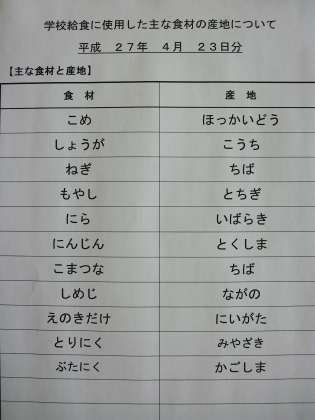 学校給食に使用した主な食材の産地について
平成 27年 4月 23日分
【主な食材と産地】
食 材 産 地
こめ ほっかいどう
しょうが こうち
ねぎ ちば
もやし とちぎ
にら いばらき
にんじん とくしま
こまつな ちば
しめじ ながの
えのきだけ にいがた
とりにく みやざき
ぶたにく かごしま